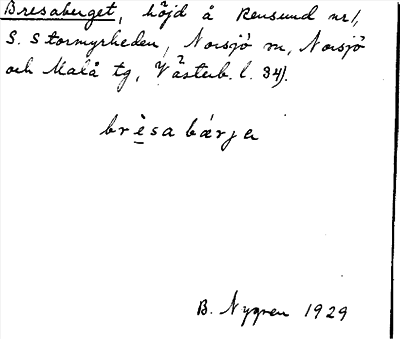 Bresaberget, höjd å Rensund nr 1,
S. Stormyrheden, Norsjö sn, Norsjö
och Malå tg, Västerb. l. 34).
brèsabárjɐ
B. Nygren 1929